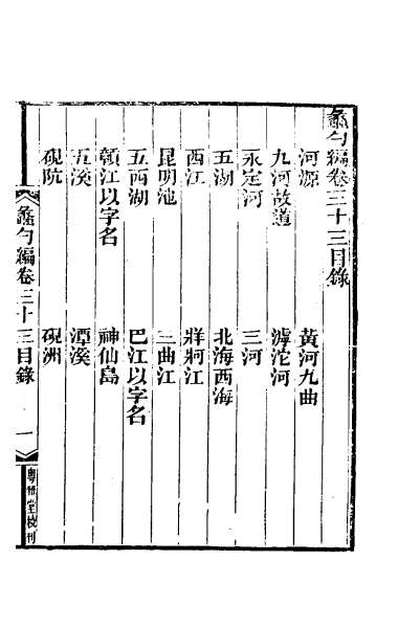 蠡勺編卷三十三目錄
河源 黃河九曲
九河故道 滹沱河
永定河 三河
五湖 北海西海
西江 牂牁江
昆明池 三曲江
五西湖 巴江以字名
贛江以字名 神仙島
五溪 潭溪
硯阬 硯洲
蠡勺編卷三十三目錄 一 粵雅堂校刊